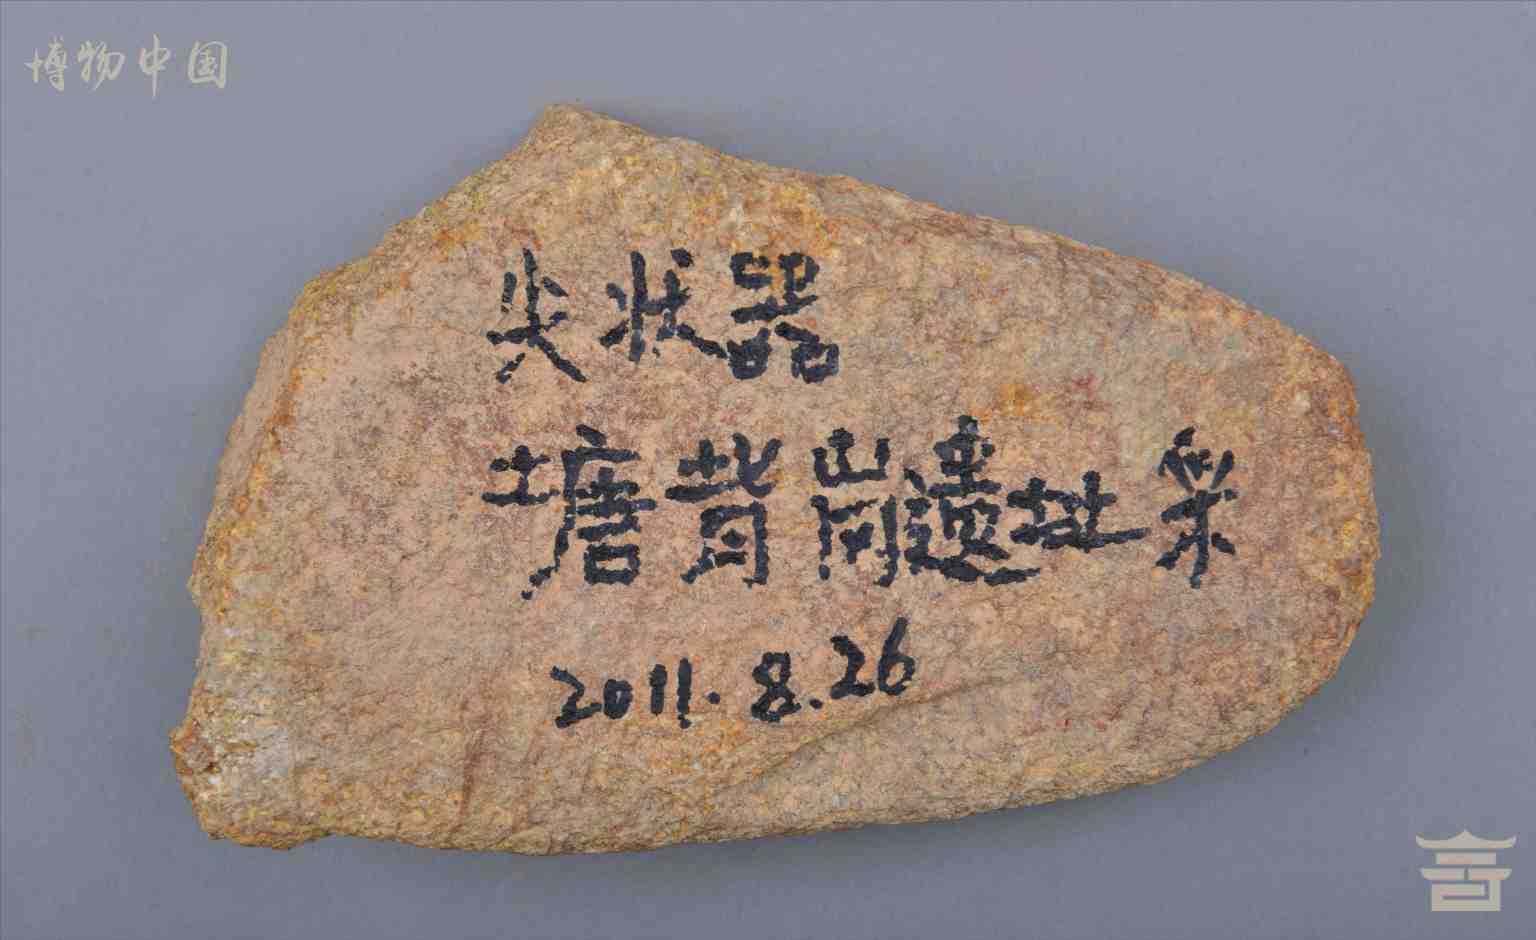 博物中国
尖状器
塘背岗遗址采
2011.8.26